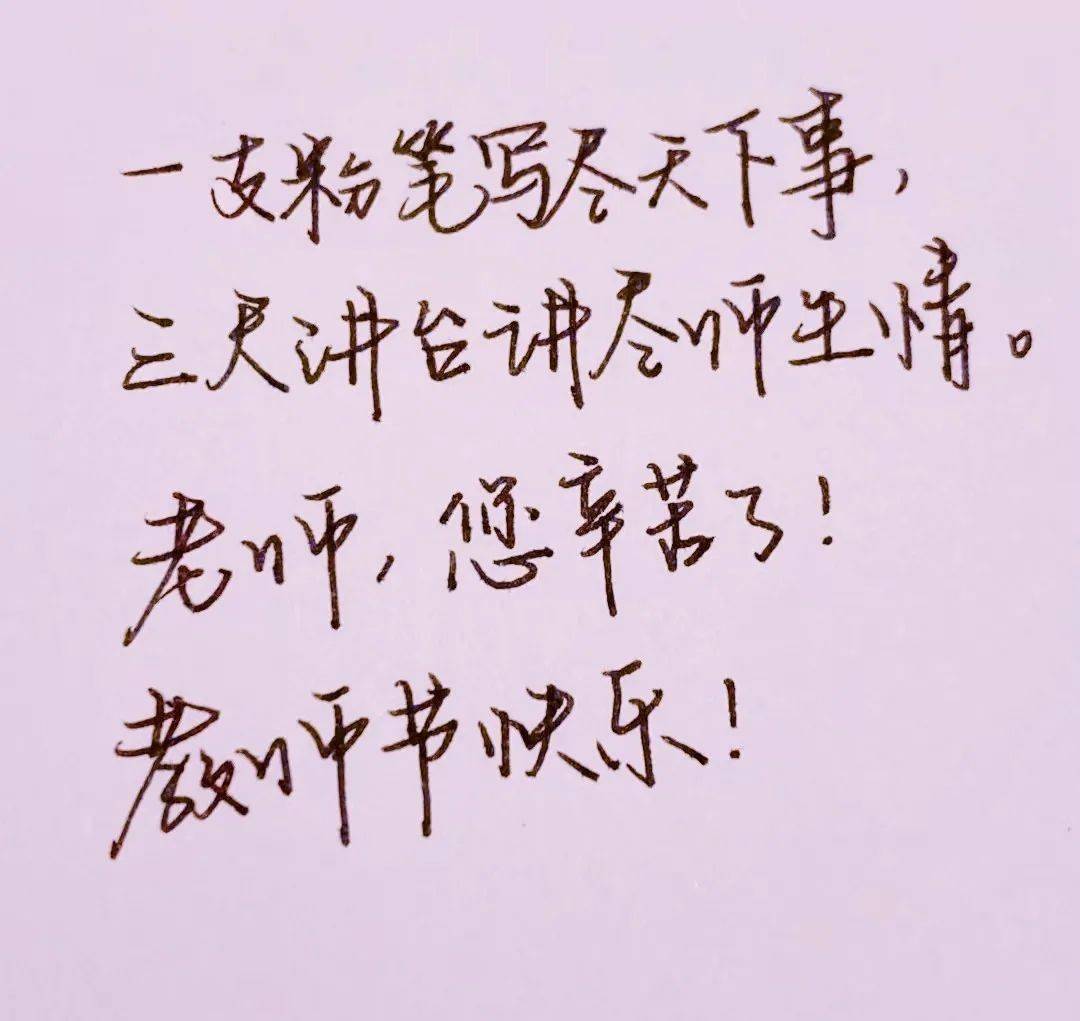 一支粉笔写尽天下事，
三尺讲台讲尽师生情。
老师，您辛苦了！
教师节快乐！